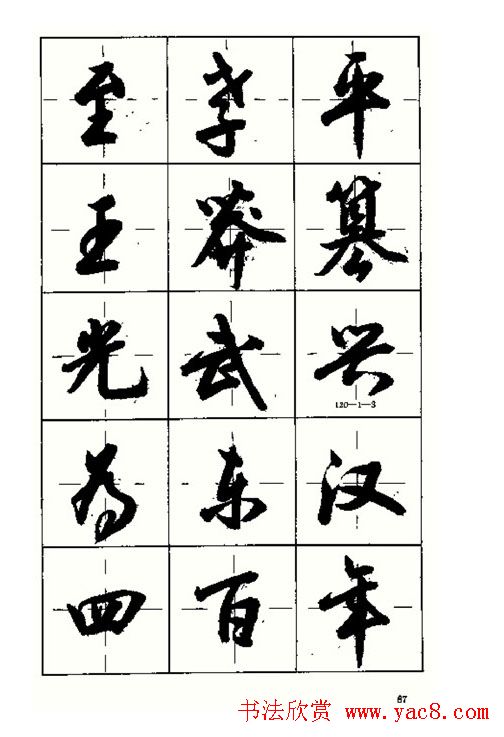 至孝平
王莽篡
光武兴
120—1—3
为东汉
四百年
67
书法欣赏 www.yac8.com